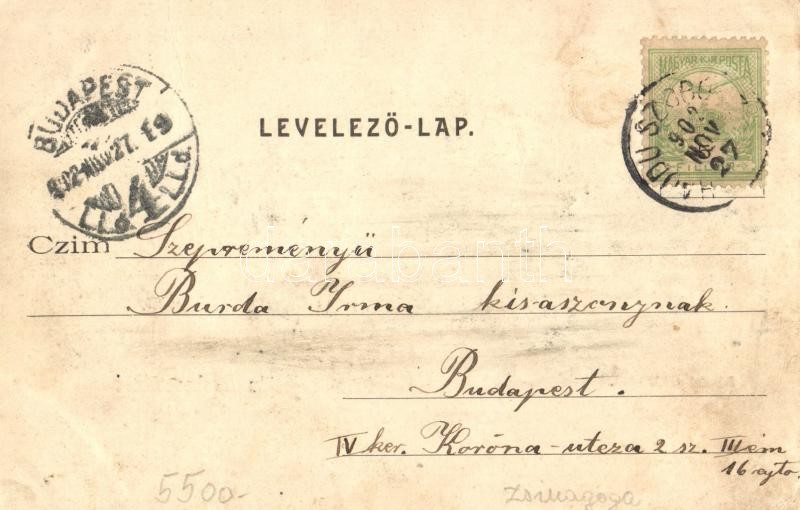 BUDAPEST
902 NOV 27.
4
MAGYAR KIR. POSTA
HAJDU SZOBO
902
NOV
27
LEVELEZŐ-LAP.
Czim Szepreményü
Burda Irma kisaszonynak.
Budapest.
IV ker. Koróna-utcza 2 sz. III em
16 ajto
5500-
zsinagoga
darabanth